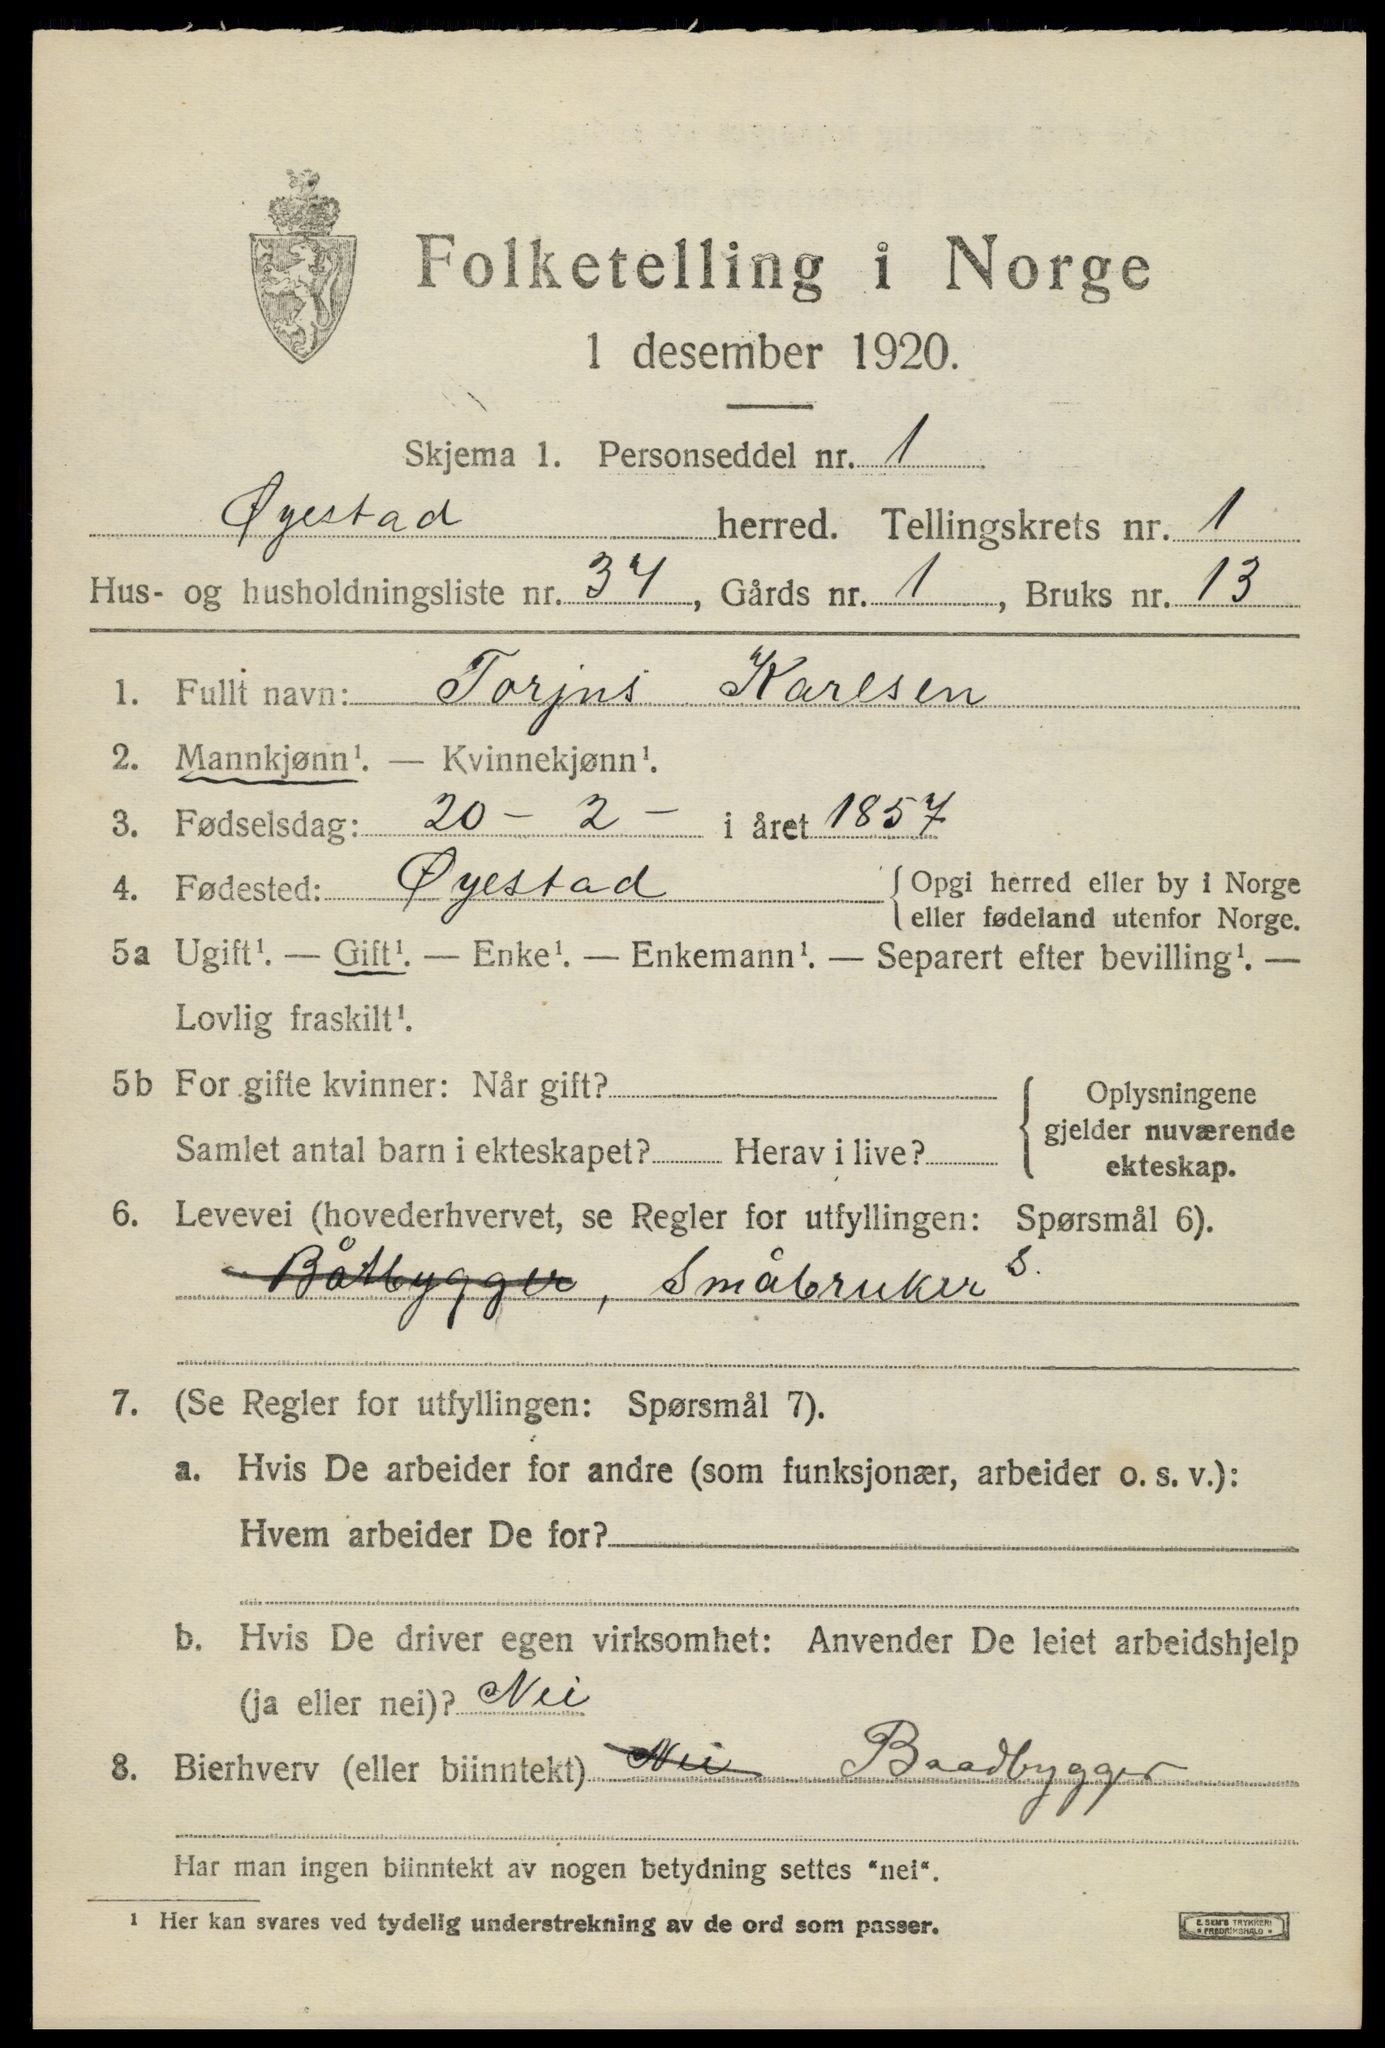 Folketelling i Norge
1 desember 1920.
Skjema 1. Personseddel nr. 1
Øyestad herred. Tellingskrets nr. 1
Hus- og husholdningsliste nr. 34, Gårds nr. 1, Bruks nr. 13
1. Fullt navn: Torjus Karlsen
2. Mannkjønn¹. — Kvinnekjønn¹.
3. Fødselsdag: 20 - 2 - i året 1857
4. Fødested: Øyestad { Opgi herred eller by i Norge
eller fødeland utenfor Norge.
5a Ugift¹. — Gift¹. — Enke¹. — Enkemann¹. — Separert efter bevilling¹. —
Lovlig fraskilt¹.
5b For gifte kvinner: Når gift? { Oplysningene
gjelder nuværende
Samlet antal barn i ekteskapet? Herav i live?
ekteskap.
6. Levevei (hovederhvervet, se Regler for utfyllingen: Spørsmål 6).
Båtbygger, Småbruker S.
7. (Se Regler for utfyllingen: Spørsmål 7).
a. Hvis De arbeider for andre (som funksjonær, arbeider o. s. v.):
Hvem arbeider De for?
b. Hvis De driver egen virksomhet: Anvender De leiet arbeidshjelp
(ja eller nei)? Nei
8. Bierhverv (eller biinntekt) Nei Baadbygger
Har man ingen biinntekt av nogen betydning settes "nei".
1 Her kan svares ved tydelig understrekning av de ord som passer.
E. SEM'S TRYKKERI
FREDRIKSHALD